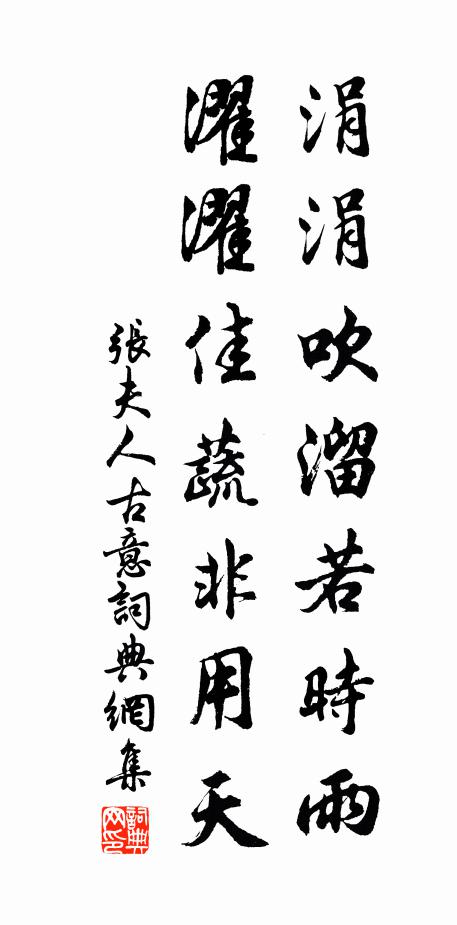 涓涓吹溜若時雨
濯濯佳蔬非用天
張夫人古意詞典網集
詞典网印